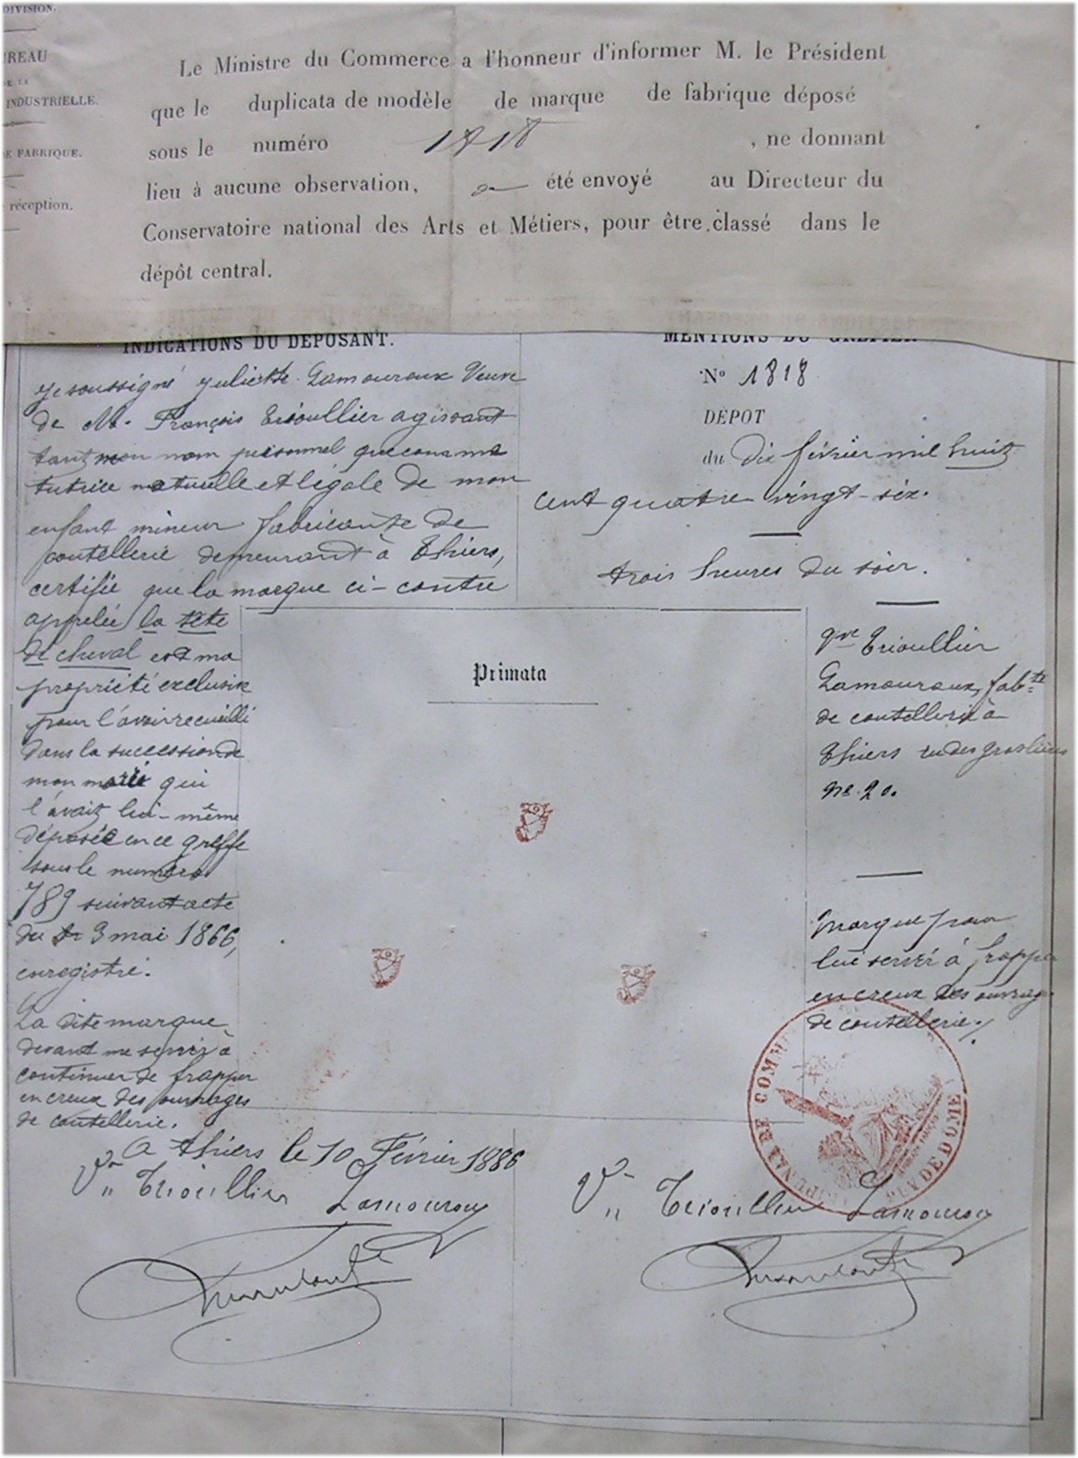 DIVISION.
REAU
DE LA
INDUSTRIELLE.
DE FABRIQUE.
réception.
Le Ministre du Commerce a l'honneur d'informer M. le Président
que le duplicata de modèle de marque de fabrique déposé
sous le numéro 1818 , ne donnant
lieu à aucune observation, a été envoyé au Directeur du
Conservatoire national des Arts et Métiers, pour être classé dans le
dépôt central.
INDICATIONS DU DÉPOSANT.
Je soussigné Juliette Lamouroux Veuve
de M. François Trioullier agissant
tant mon nom personnel que comme
tutrice naturelle et légale de mon
enfant mineur fabricante de
coutellerie demeurant à Thiers,
certifie que la marque ci-contre
appelée la tête
de cheval est ma
propriété exclusive
pour l'avoir recueilli
dans la succession de
mon mari qui
l'avait lui-même
déposée en ce greffe
sous le numéro
789 suivant acte
du 3 mai 1866,
enregistré.
La dite marque
devant me servir à
continuer de frapper
en creux des ouvrages
de coutellerie.
A Thiers le 10 Février 1886
Vve Trioullier Lamouroux
MENTIONS DU GREFFIER
No 1818
DÉPOT
du dix février mil huit
cent quatre vingt-six.
trois heures du soir.
Primata
Vve Trioullier
Lamouroux, fabte
de coutellerie à
Thiers rue des groslières
no 20.
Marque pour
lui servir à frapper
en creux des ouvrages
de coutellerie.
TRIBUNAL DE COMMERCE
PUY DE DOME
Vve Trioullier Lamouroux